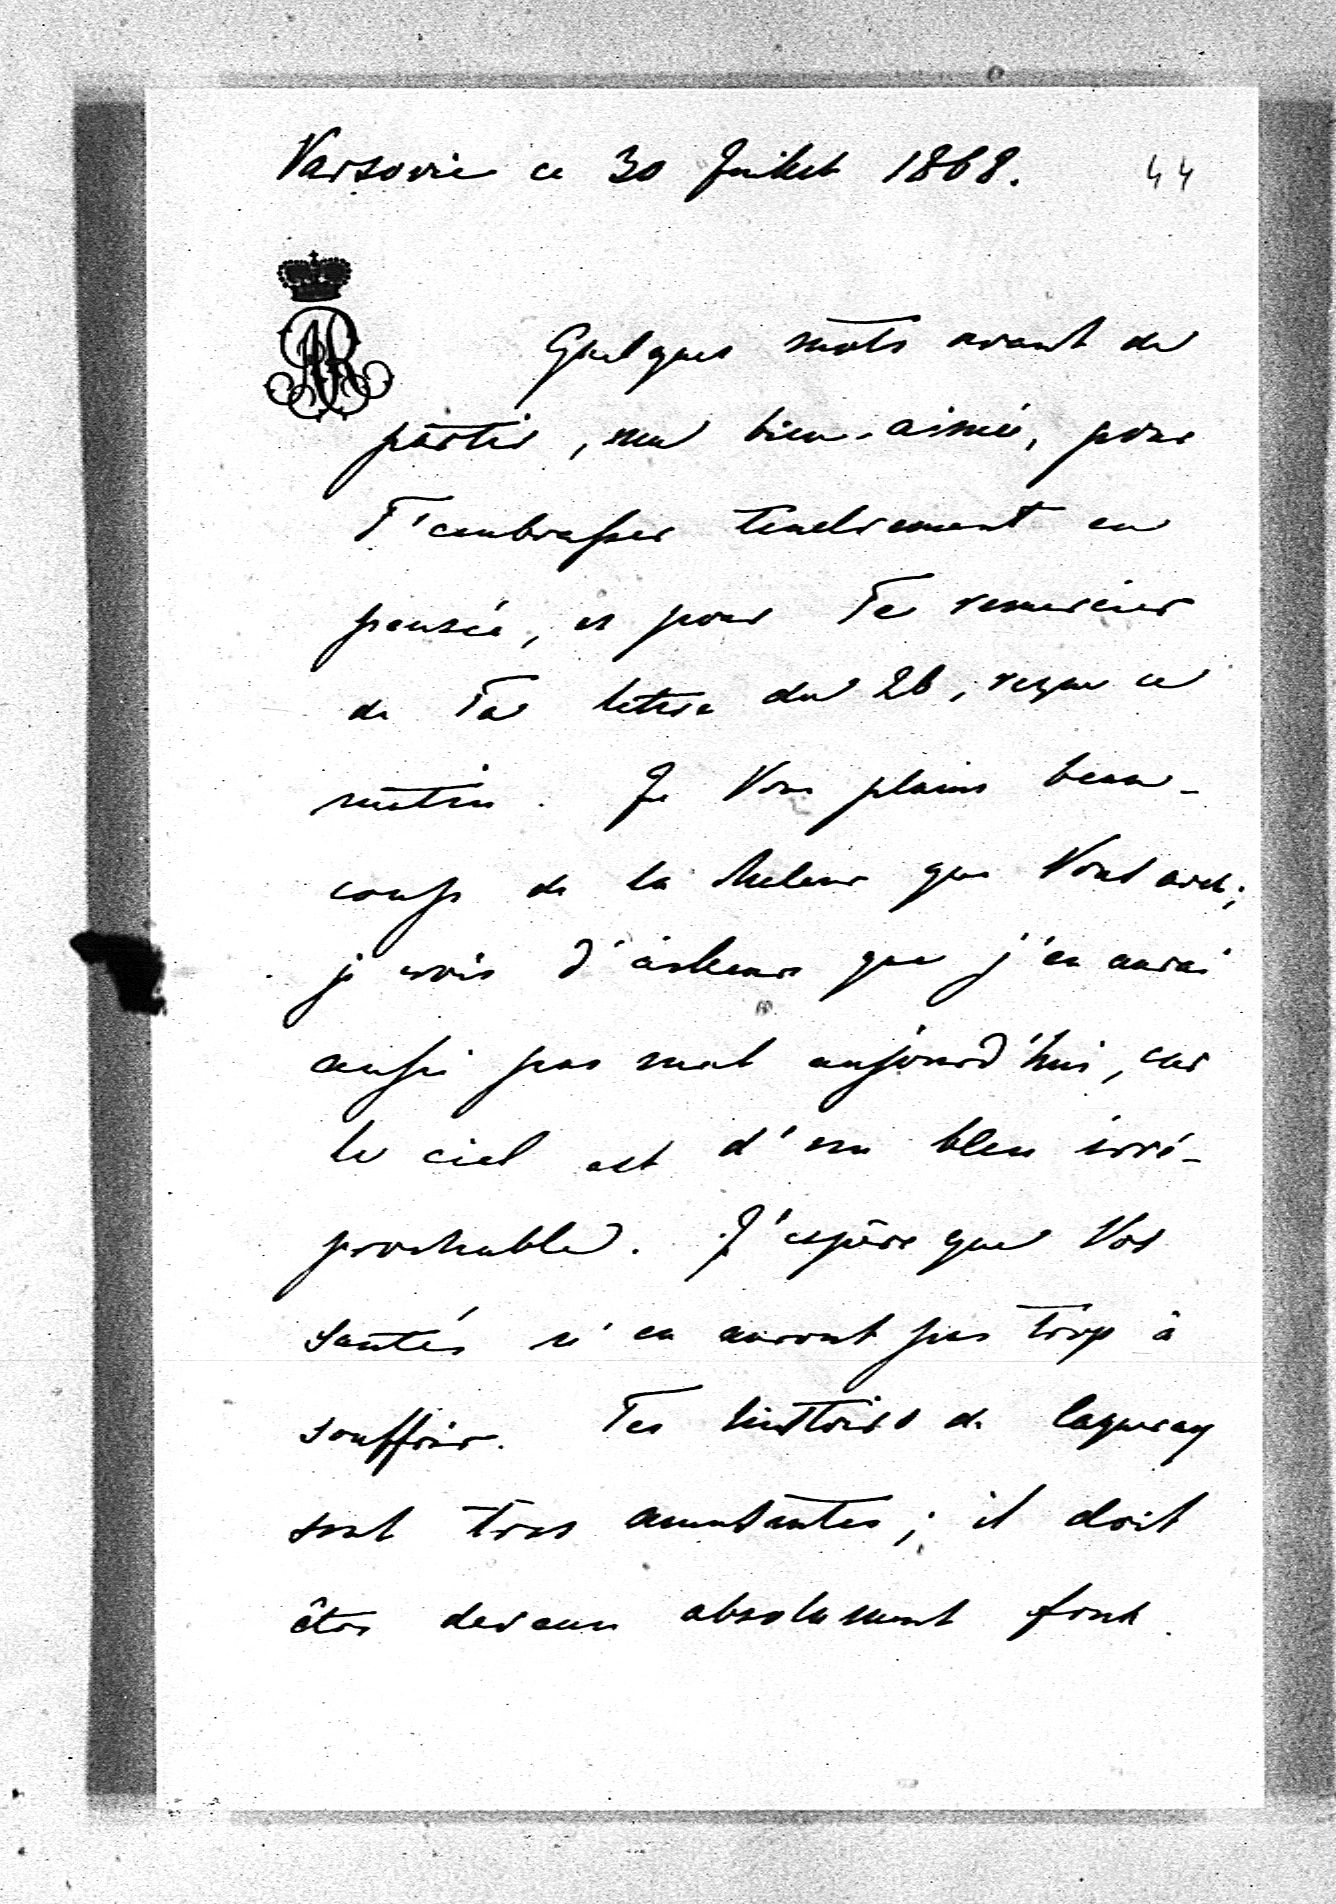 Varsovie ce 30 Juillet 1868. 44
AR
Quelques mots avant de
partir, ma bien-aimée, pour
T'embrasser tendrement en
pensée, et pour Te remercier
de Ta lettre du 26, reçue ce
matin. Je Vous plains beau-
coup de la chaleur que Vous avez;
je crois d'ailleurs que j'en aurai
aussi pas mal aujourd'hui, car
le ciel est d'un bleu irré-
prochable. J'espère que Vos
santés n'en auront pas trop à
souffrir. Tes histoires de
sont très amusantes; il doit
être devenu absolument fou.